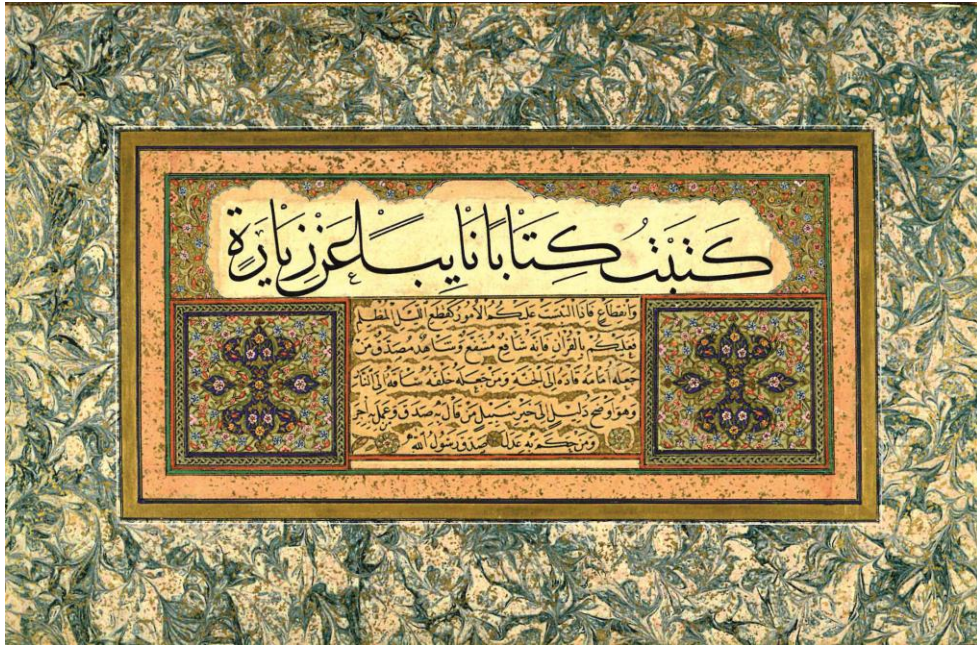 كَتَبْتُ كِتَابًا نَايِبًا عَنْ زِيَارَةٍ
وانقطاع فاذا التبست عليكم الامور كقطع الليل المظلم
فعليكم بالقران فانه شافع مشفع وشاهد مصدق من
جعله امامه قاده الى الجنة ومن جعله خلفه ساقه الى النار
وهو اوضح دليل الى خير سبيل من قال به صدق ومن عمل به اجر
ومن حكم به عدل صدق رسول الله